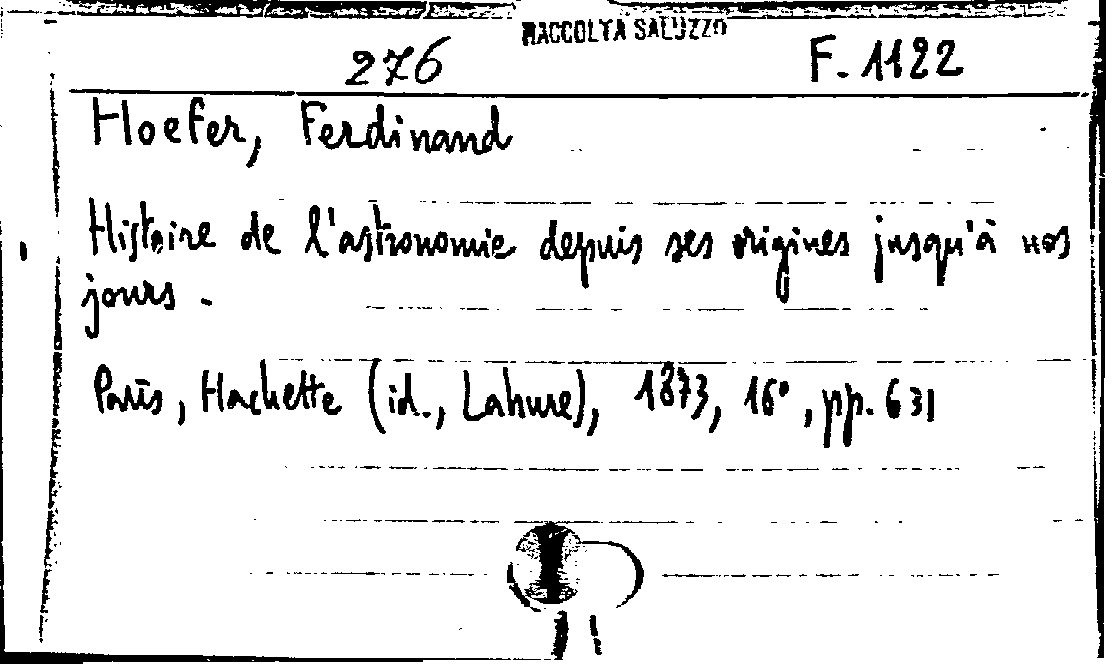 RACCOLTA SALUZZO
276 F. 1122
Hoefer, Ferdinand
Histoire de l'astronomie depuis ses origines jusqu'à nos
jours.
Paris, Hachette (id., Lahure), 1873, 16°, pp. 631